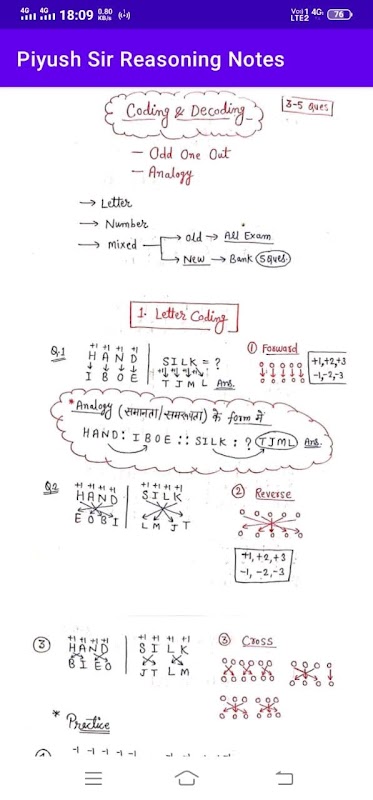 4G 4G 18:09 0.80 KB/s
Vo) 1 4G LTE2 76
Piyush Sir Reasoning Notes
Coding & Decoding
3-5 Ques
- Odd One Out
- Analogy
→ Letter
→ Number
→ mixed → old → All Exam
→ New → Bank 5 Ques.
1. Letter Coding
Q.1 +1 +1 +1 +1
H A N D
↓ ↓ ↓ ↓
I B O E
SILK = ?
+1↓ +1↓ +1↓ +1↓
T J M L Ans.
① Forward
+1,+2,+3
-1,-2,-3
* Analogy (समानता/समरूपता) के form में
HAND : IBOE :: SILK : ? TJML Ans.
Q2 +1 +1 +1 +1
HAND
E O B I
+1 +1 +1 +1
SILK
L M J T
② Reverse
+1, +2, +3
-1, -2, -3
③ +1 +1 +1 +1
HAND
B I E O
+1 +1 +1 +1
S I L K
J T L M
③ Cross
* Practice
-1 -1 -1 -1 -1